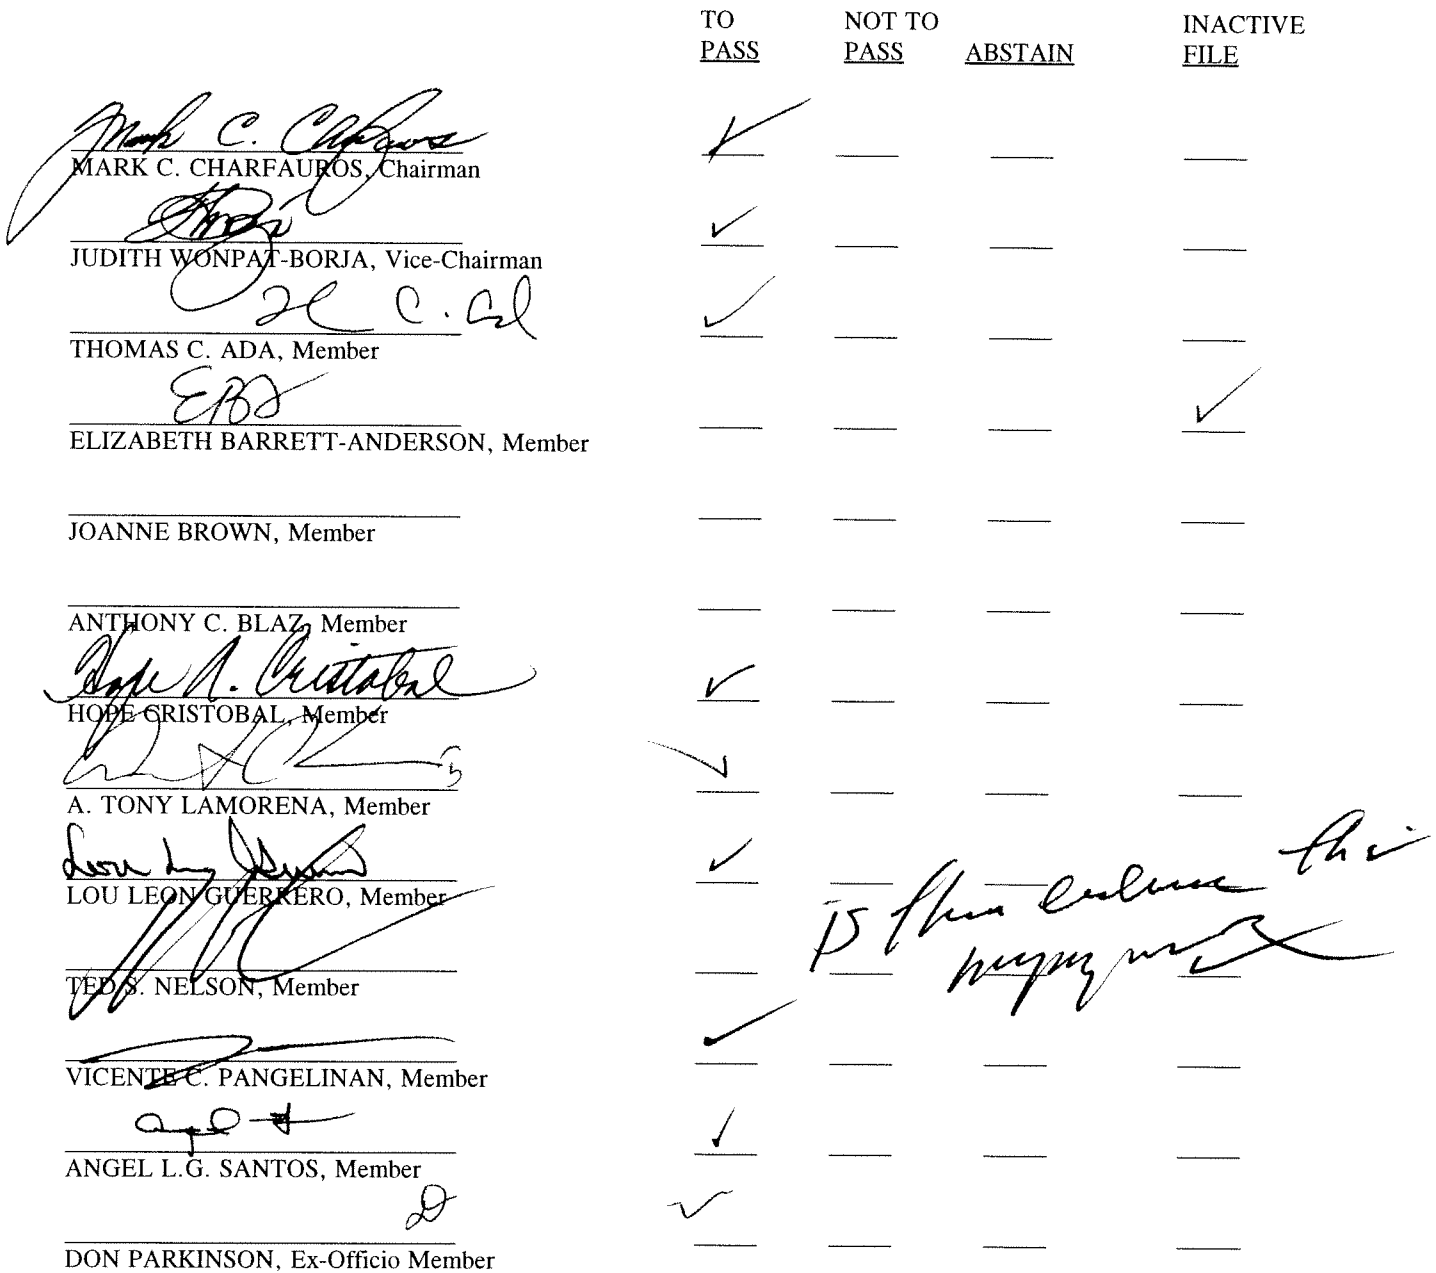 TO PASS NOT TO PASS ABSTAIN INACTIVE FILE
Mark C. Charfauros
MARK C. CHARFAUROS, Chairman
JUDITH WONPAT-BORJA, Vice-Chairman
THOMAS C. ADA, Member
EBA
ELIZABETH BARRETT-ANDERSON, Member
JOANNE BROWN, Member
ANTHONY C. BLAZ, Member
Hope A. Cristobal
HOPE CRISTOBAL, Member
A. TONY LAMORENA, Member
LOU LEON GUERRERO, Member
is
TED S. NELSON, Member
VICENTE C. PANGELINAN, Member
Angel
ANGEL L.G. SANTOS, Member
DON PARKINSON, Ex-Officio Member